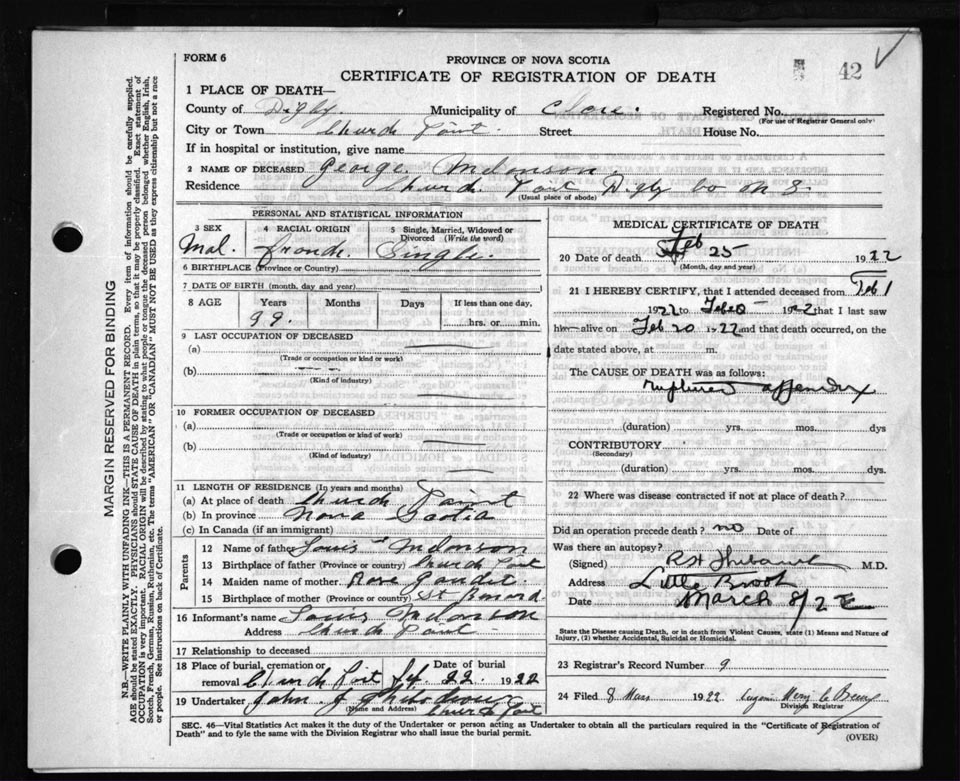 FORM 6
PROVINCE OF NOVA SCOTIA
CERTIFICATE OF REGISTRATION OF DEATH
42
1 PLACE OF DEATH—
County of Digby Municipality of Clare. Registered No.
(For use of Registrar General only)
City or Town Church Point. Street House No.
If in hospital or institution, give name
2 NAME OF DECEASED George
Residence Church Point Digby Co
(Usual place of abode)
PERSONAL AND STATISTICAL INFORMATION
3 SEX 4 RACIAL ORIGIN 5 Single, Married, Widowed or Divorced (Write the word)
Mal. French. Single.
6 BIRTHPLACE (Province or Country)
7 DATE OF BIRTH (month, day and year)
8 AGE Years Months Days If less than one day,
hrs. or min.
9 LAST OCCUPATION OF DECEASED
(a)
(Trade or occupation or kind or work)
(b)
(Kind of industry)
10 FORMER OCCUPATION OF DECEASED
(a)
(Trade or occupation or kind or work)
(b)
(Kind of industry)
11 LENGTH OF RESIDENCE (In years and months)
(a) At place of death Church Point
(b) In province Nova Scotia
(c) In Canada (if an immigrant)
Parents
12 Name of father Louis
13 Birthplace of father (Province or country) Church Point
14 Maiden name of mother. Rose Gaudet.
15 Birthplace of mother (Province or country) St Bernard
16 Informant's name Louis
Address Church Point
17 Relationship to deceased
18 Place of burial, cremation or removal Church Point Date of burial 22. 1922
19 Undertaker John J Thibodeau
(Name and Address) Church Point
MEDICAL CERTIFICATE OF DEATH
20 Date of death Feb 25 1922
(Month, day and year)
21 I HEREBY CERTIFY, that I attended deceased from Feb 1
1922 to Feb 1922 that I last saw
him alive on Feb 20 1922 and that death occurred, on the
date stated above, at m.
The CAUSE OF DEATH was as follows:
ruptured appendix
(duration) yrs. mos. dys
CONTRIBUTORY
(Secondary)
(duration) yrs. mos. dys.
22 Where was disease contracted if not at place of death?
Did an operation precede death? no Date of
Was there an autopsy?
(Signed) M.D.
Address Little Brook
Date March 8/22
State the Disease causing Death, or in death from Violent Causes, state (1) Means and Nature of
Injury, (2) whether Accidental, Suicidal or Homicidal.
23 Registrar's Record Number 9
24 Filed 8 Mars 1922
Division Registrar
SEC. 46—Vital Statistics Act makes it the duty of the Undertaker or person acting as Undertaker to obtain all the particulars required in the "Certificate of Registration of
Death" and to fyle the same with the Division Registrar who shall issue the burial permit.
(OVER)
MARGIN RESERVED FOR BINDING
N.B.—WRITE PLAINLY WITH UNFADING INK—THIS IS A PERMANENT RECORD. Every item of information should be carefully supplied.
AGE should be stated EXACTLY. PHYSICIANS should STATE CAUSE OF DEATH in plain terms, so that it may be properly classified. Exact statement of
OCCUPATION is very important. RACIAL ORIGIN will be described by stating to what people or tongue the deceased person belonged whether English, Irish,
Scotch, French, German, Russian, Ruthenian, etc. The terms "AMERICAN" or "CANADIAN" MUST NOT BE USED as they express citizenship but not a race
or people. See instructions on back of Certificate.